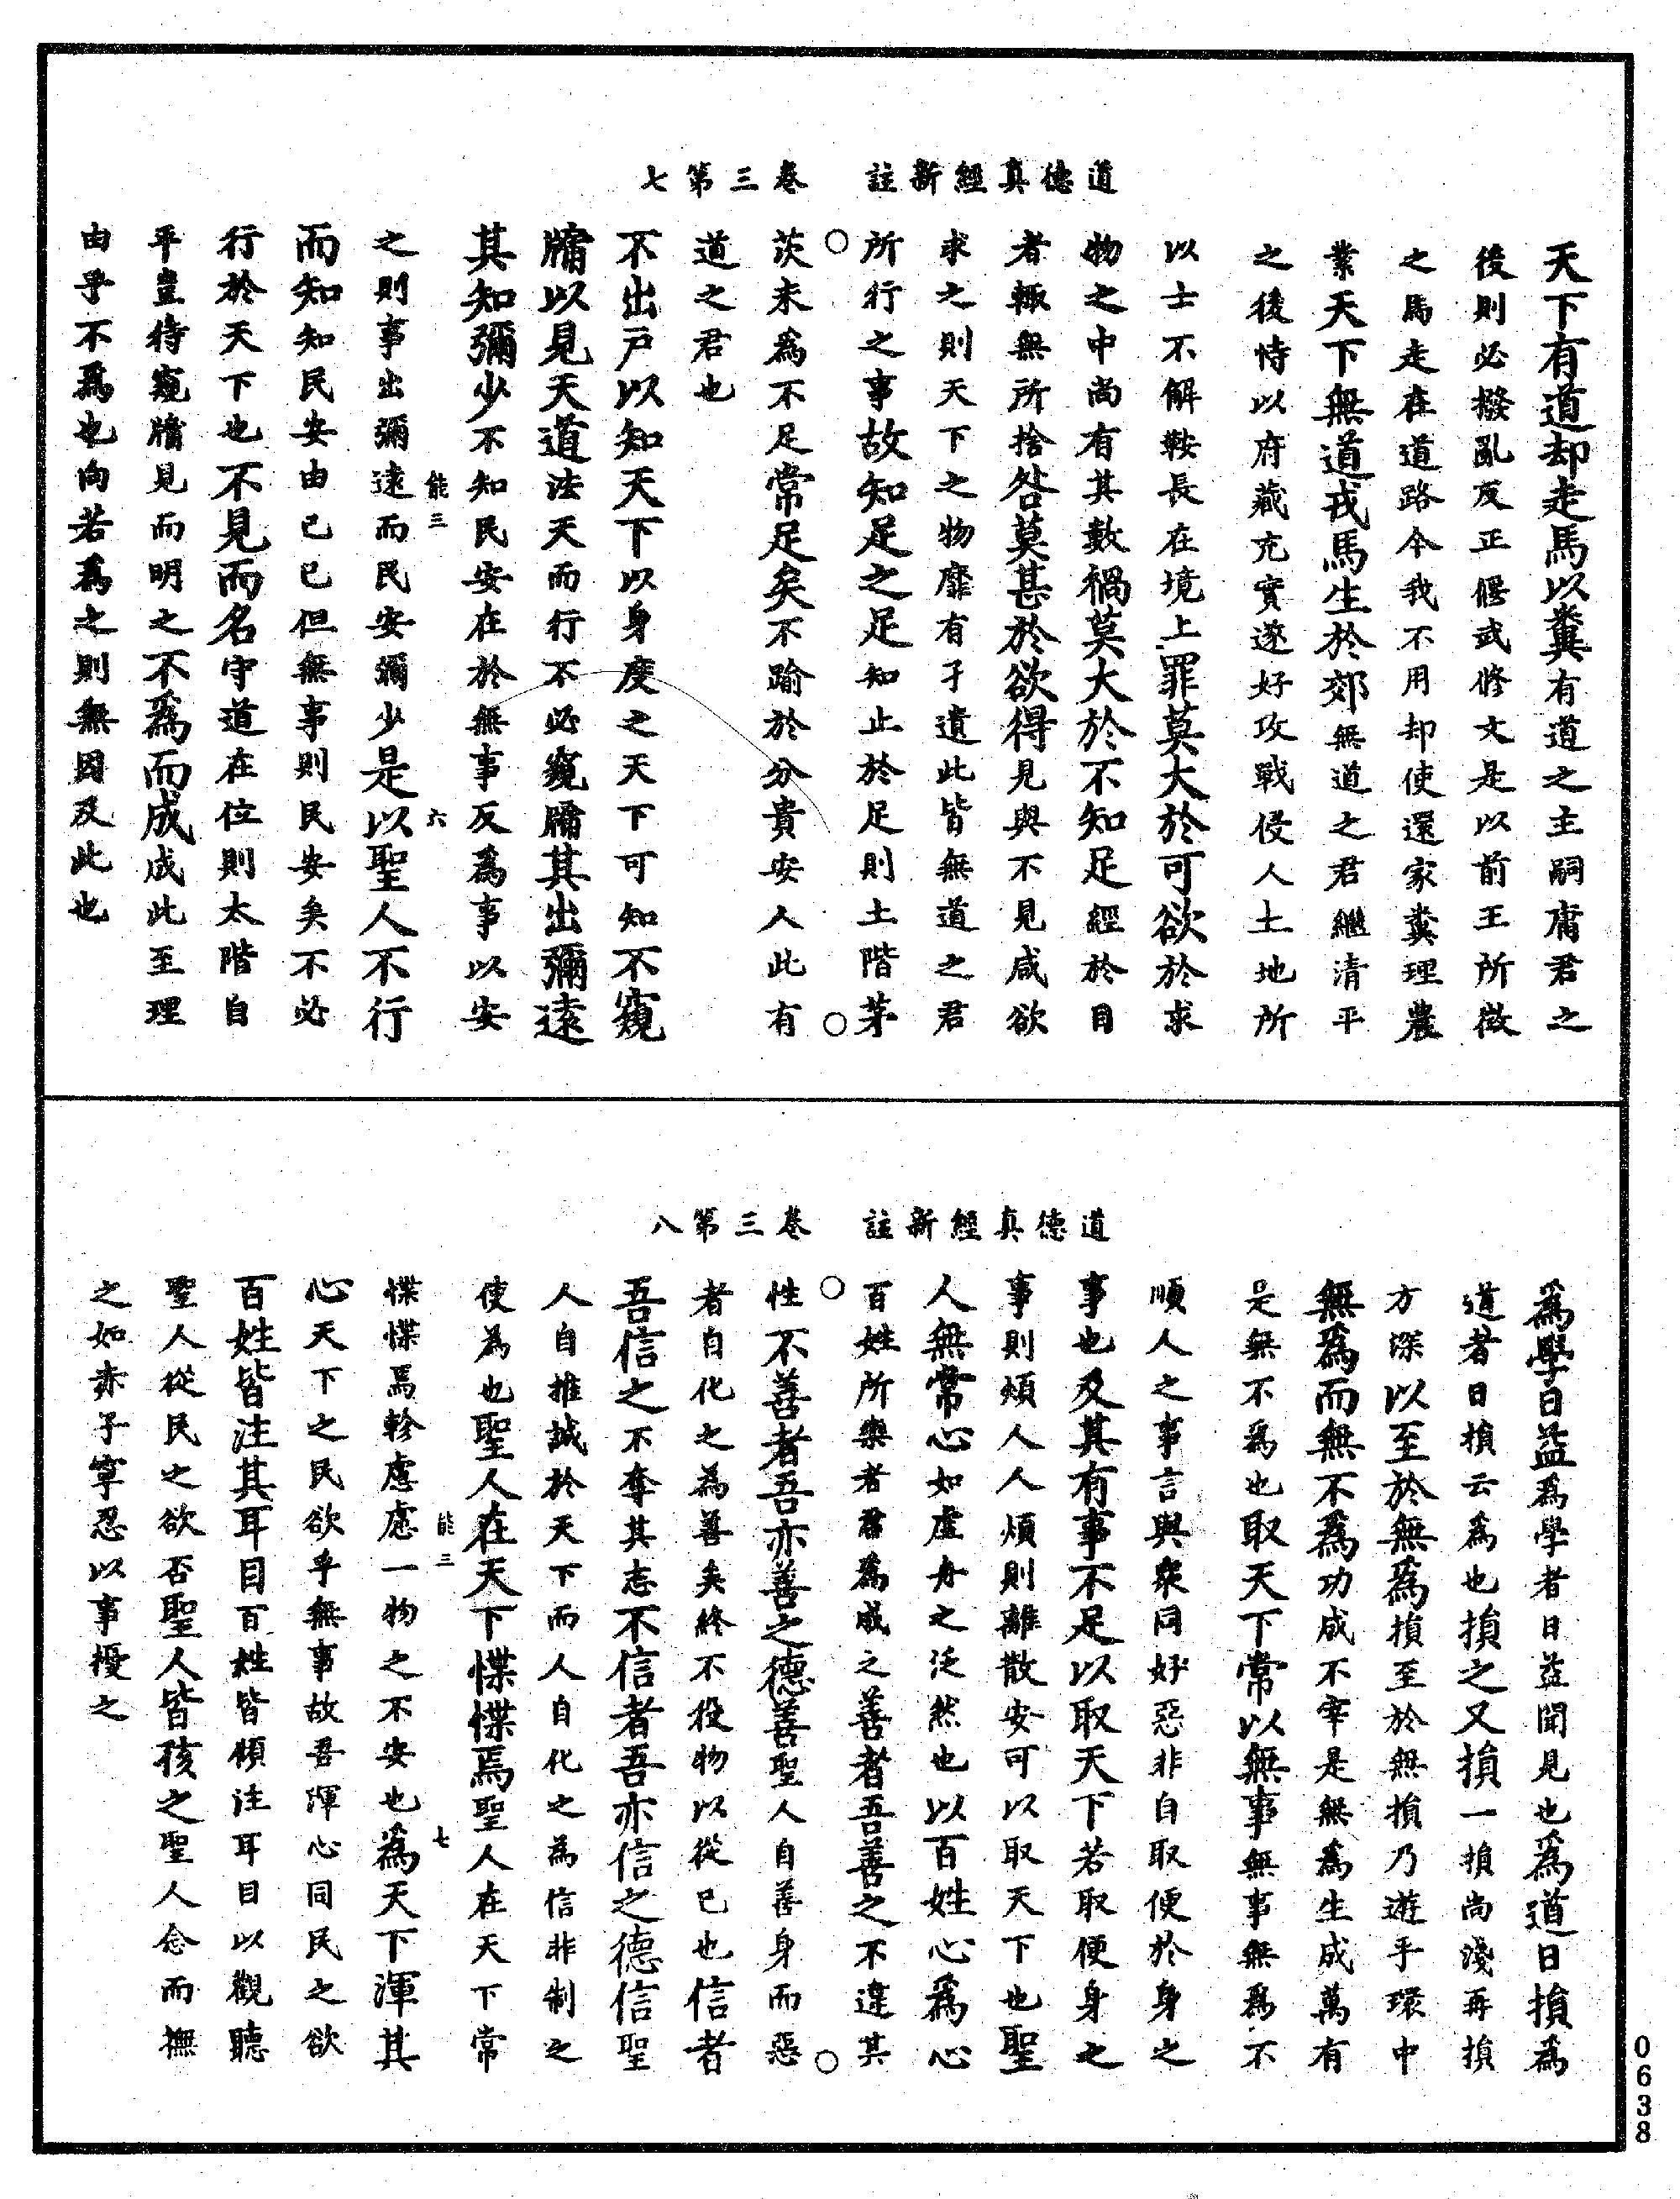 道德真經新註　卷三第七
天下有道却走馬以糞有道之主嗣庸君之
後則必撥亂反正偃武修文是以前王所徵
之馬走在道路今我不用却使還家糞理農
業天下無道戎馬生於郊無道之君繼清平
之後恃以府藏充實遂好攻戰侵人土地所
以士不解鞍長在境上罪莫大於可欲於求
物之中尚有其數禍莫大於不知足經於目
者輒無所捨咎莫甚於欲得見與不見咸欲
求之則天下之物靡有孑遺此皆無道之君
所行之事故知足之足知止於足則土階茅
茨未為不足常足矣不踰於分貴安人此有
道之君也
不出戶以知天下以身度之天下可知不窺
牖以見天道法天而行不必窺牖其出彌遠
其知彌少不知民安在於無事反為事以安
之則事出彌遠而民安彌少是以聖人不行
能三　六
而知知民安由己已但無事則民安矣不必
行於天下也不見而名守道在位則太階自
平豈待窺牖見而明之不為而成成此至理
由乎不為也向若為之則無因及此也
道德真經新註　卷三第八
為學日益為學者日益聞見也為道日損為
道者日損云為也損之又損一損尚淺再損
方深以至於無為損至於無損乃遊乎環中
無為而無不為功成不宰是無為生成萬有
是無不為也取天下常以無事無事無為不
順人之事言與衆同好惡非自取便於身之
事也及其有事不足以取天下若取便身之
事則煩人人煩則離散安可以取天下也聖
人無常心如虛舟之泛然也以百姓心為心
百姓所樂者君為成之善者吾善之不違其
性不善者吾亦善之德善聖人自善身而惡
者自化之為善矣終不役物以從己也信者
吾信之不奪其志不信者吾亦信之德信聖
人自推誠於天下而人自化之為信非制之
使為也聖人在天下惵惵焉聖人在天下常
能三　七
惵惵焉軫慮慮一物之不安也為天下渾其
心天下之民欲乎無事故吾渾心同民之欲
百姓皆注其耳目百姓皆傾注耳目以觀聽
聖人從民之欲否聖人皆孩之聖人念而撫
之如赤子寧忍以事擾之
0638